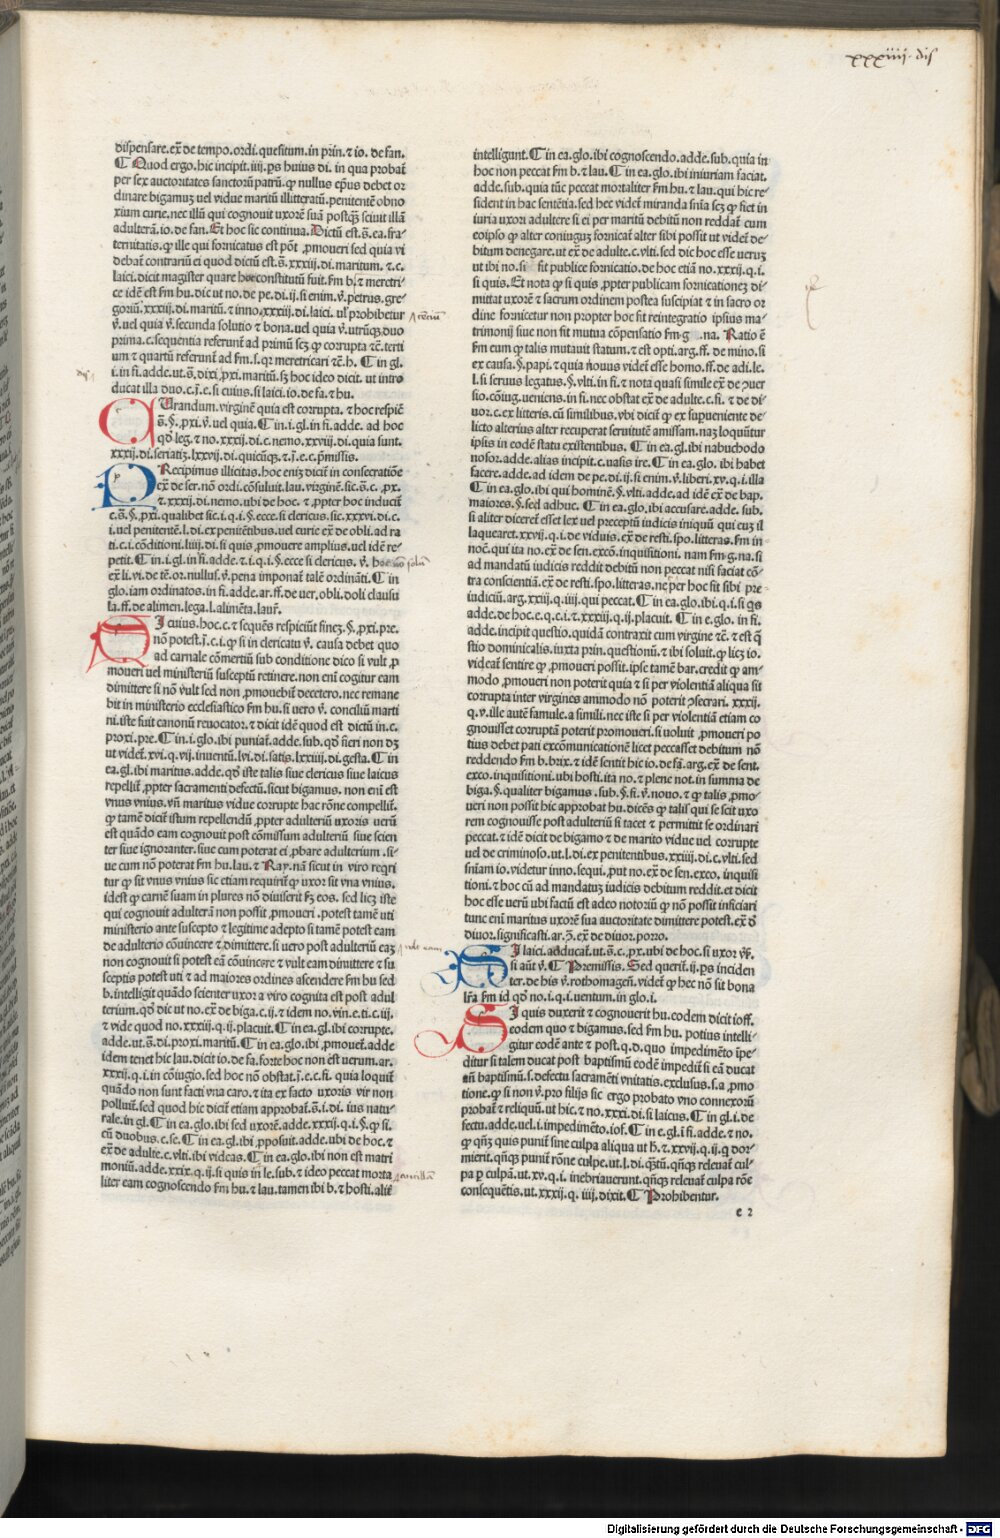 xxxiiii. dis
dispensare.ex̄ de tempo.ordi.quesitum.in prin.⁊ io. de fan.
¶ Quod ergo.hic incipit.iiij.ps huius di. in qua probat̄
per sex auctoritates sanctorū patrū.ꝙ nullus ep̄us debet or
dinare bigamuꝫ uel vidue maritū illitteratū.penitentē obno
xium curie.nec illū qui cognouit uxorē suā postqꝫ sciuit illā
adulterā.io. de fan. Et hoc sic continua. Dictū est.s̄.ea.fra⸗
ternitatis.ꝙ ille qui fornicatus est pōt ꝓmoueri sed quia vi
debat̄ contrariū ei quod dictū est.s̄.xxxiij.di.maritum.⁊.c.
laici.dicit magister quare hoc constitutū fuit.fm h.⁊ meretri⸗
ce idē est fm hu.dic ut no.de pe.di.ij.si enim.v̄.petrus.gre⸗
goriū.xxxiij.di.maritū.⁊ inno.xxxiij.di.laici. ul' prohibetur
v̄.uel quia v̄.secunda solutio ⁊ bona.uel quia v̄.utrūqꝫ.duo
prima.c.sequentia referunt̄ ad primū scꝫ ꝙ corrupta ⁊c.terti
um ⁊ quartū referunt̄ ad fm.s.qꝛ meretricari ⁊c.h. ¶ in gl.
i.in fi.adde.ut.s̄.dixi.ꝓxi.maritū.sꝫ hoc ideo dicit. ut intro
ducat illa duo.c.j̄.e.si cuius.si laici.io.de fa.⁊ hu.
CUrandum.virginē quia est corrupta.⁊ hoc respic̄
s̄.§.ꝓxi.v̄.uel quia.¶ in.i.gl.in fi.adde. ad hoc
qd̄ leg.⁊ no.xxxij.di.c.nemo.xxviij.di.quia sunt.
xxxij.di.seriatiꝫ.lxxvij.di.quicūqꝫ.⁊.j̄.e.c.p̄missis.
PRecipimus illicitas.hoc eniꝫ dicit̄ in consecratiōe
ex̄ de ser.nō ordi.cōsuluit.lau.virginē.sic.s̄.c.ꝓx.
⁊.xxxij.di.nemo.ubi de hoc.⁊ ꝓpter hoc inducit̄
c.s̄.§.ꝓxi.qualibet sic.i.q.i.§.ecce.si clericus.sic.xxxvi.di.c.
i.uel penitentē.l.di.ex penitētibus.uel curie ex̄ de obli.ad ra
ti.c.i.cōditioni.liiij.di.si quis ꝓmouere amplius.uel idē re⸗
petit.¶ in.i.gl.in fi.adde.⁊.i.q.i.§.ecce si clericus. v̄. hoc
ex̄ li.vi.de tē.or.nullus.v̄.pena imponat̄ talē ordināti. ¶ in
glo.iam ordinatos.in fi.adde.ar.ff.de uer.obli.doli clausu
la.ff.de alimen.lega.l.alimēta.laur̄.
SI cuius.hoc.c.⁊ sequēs respiciūt fineꝫ.§.ꝓxi.pre.
nō potest.j̄.c.i.ꝙ si in clericatu v̄. causa debet quo
ad carnale cōmertiū sub conditione dico si vult ꝓ
moueri uel ministeriū susceptū retinere.non eni̅ cogitur eam
dimittere si nō vult sed non ꝓmouebit̄ decetero.nec remane
bit in ministerio ecclesiastico fm hu.si uero v̄. conciliū marti
ni.iste fuit canonū reuocator.⁊ dicit idē quod est dictū in.c.
proxi.pre.¶ in.i.glo.ibi puniat̄.adde.sub.qd̄ fieri non dꝫ
ut videt̄.xvi.q.vij.inuentū.lvi.di.satis.lxxxiij.di.gesta.¶ in
ea.gl.ibi maritus.adde.qd̄ iste talis siue clericus siue laicus
repellit̄ ꝓpter sacramenti defectū.sicut bigamus. non eni̅ est
vnus vnius. vn̄ maritus vidue corrupte hac rōne compellit̄.
ꝙ tamē dicit̄ istum repellendū ꝓpter adulteriū uxoris uerū
est quādo eam cognouit post cōmissum adulteriū siue scien
ter siue ignoranter.siue cum poterat ei ꝓbare adulterium .si⸗
ue cum nō poterat fm hu.lau.⁊ Ray.nā sicut in viro reqri
tur ꝙ sit vnus vnius sic etiam requirit̄ ꝙ uxor sit vna vnius.
idest ꝙ carnē suam in plures nō diuiserit sꝫ eos. sed licꝫ iste
qui cognouit adulterā non possit ꝓmoueri .potest tamē uti
ministerio ante suscepto ⁊ legitime adepto si tamē potest eam
de adulterio cōuincere ⁊ dimittere.si uero post adulteriū eaꝫ
non cognouit si potest eā cōuincere ⁊ vult eam dimittere ⁊ su
sceptis potest uti ⁊ ad maiores ordines ascendere fm hu sed
b.intelligit quādo scienter uxor a viro cognita est post adul
terium.qd̄ dic ut no.ex̄ de biga.c.ij.⁊ idem no.vin.e.ti.c.iij.
⁊ vide quod no.xxxiij.q.ij.placuit.¶ in ea.gl.ibi corrupte.
adde.ut.s̄.di.proxi.maritū.¶ in ea.glo.ibi ꝓmouet̄.adde
idem tenet hic lau.dicit io.de fa.forte hoc non est verum.ar.
xxxij.q.i.in cōiugio.sed hoc nō obstat.j̄.e.c.fi. quia loquit̄
quādo non sunt facti vna caro.⁊ ita ex facto uxoris vir non
polluit̄.sed quod hic dicit etiam approbat̄.s̄.i.di. ius natu⸗
rale.in gl.¶ in ea.glo.ibi sed uxorē.adde.xxxij.q.i.§.ꝙ si.
cū duobus.c.se.¶ in ea.gl.ibi ꝓposuit.adde.ubi de hoc.⁊
ex̄ de adulte.c.vlti.ibi videas.¶ in ea.glo.ibi non est matri
moniū.adde.xxix.q.ij.si quis in̄ le.sub.⁊ ideo peccat morta
liter eam cognoscendo fm hu.⁊ lau.tamen ibi b.⁊ hosti.alit̄
intelligunt.¶ in ea.glo.ibi cognoscendo.adde.sub.quia in
hoc non peccat fm b.⁊ lau.¶ in ea.glo.ibi iniuriam faciat.
adde.sub.quia tūc peccat mortaliter fm hu.⁊ lau.qui hic re⸗
sident in hac sentētia.sed hec videt̄ miranda snīa scꝫ ꝙ fiet in
iuria uxori adultere si ei per maritū debitū non reddat̄ cum
eoipso ꝙ alter coniuguꝫ fornicat̄ alter sibi possit ut videt̄ de⸗
bitum denegare.ut ex̄ de adulte.c.vlti.sed dic hoc esse ueruꝫ
ut ibi no.si fit publice fornicatio.de hoc etiā no.xxxij.q.i.
si quis.Et nota ꝙ si quis ꝓpter publicam fornicationeꝫ di⸗
mittat uxorē ⁊ sacrum ordinem postea suscipiat ⁊ in sacro or
dine fornicetur non propter hoc fit reintegratio ipsius ma⸗
trimonij siue non sit mutua cōpensatio fm g na. Ratio ē
fm eum ꝙ talis mutauit statum.⁊ est opti.arg.ff.de mino.si
ex causa.§.papi.⁊ quia nouus videt̄ esse homo.ff.de adi.le.
l.si seruus legatus.§.vlti.in fi.⁊ nota quasi simile ex̄ de ↄuer
sio.cōiug.ueniens.in fi.nec obstat ex̄ de adulte.c.fi.⁊ de di⸗
uor.c.ex litteris.cū similibus.vbi dicit̄ ꝙ ex supueniente de⸗
licto alterius alter recuperat seruitutē amissam.naꝫ loquūtur
ipsis in eodē statu existentibus. ¶ in ea.gl.ibi nabuchodo
nosor.adde.alias incipit.c.vasis ire.¶ in ea.glo. ibi habet
facere.adde.ad idem de pe.di.ij.si enim.v̄.liberi.xv.q.i.illa
¶ in ea.glo.ibi qui hominē.§.vlti.adde.ad idē ex̄ de bap.
maiores.§.sed adhuc. ¶ in ea.glo.ibi accusare.adde. sub.
si aliter diceret̄ esset lex uel preceptū iudicis iniquū qui euꝫ il
laquearet.xxvij.q.i.de viduis.ex̄ de resti.spo.litteras.fm in⸗
nocē.qui ita no.ex̄ de sen.excō.inquisitioni. nam fm g.na.si
ad mandatū iudicis reddit debitū non peccat nisi faciat cō⸗
tra conscientiā.ex̄ de resti.spo.litteras.ne per hoc fit sibi pre⸗
iudiciū.arg.xxij.q.iiij.qui peccat.¶ in ea.glo.ibi.q.i.si qs
adde.de hoc.e.q.c.i.⁊.xxxiij.q.ij.placuit. ¶ in e.glo.in fi.
adde.incipit questio.quidā contraxit cum virgine ⁊c.⁊ est q̄
stio dominicalis.iuxta prin.questionū.⁊ ibi soluit.ꝙ licꝫ io.
videat̄ sentire ꝙ ꝓmoueri possit.ipse tamē bar.credit ꝙ am⸗
modo ꝓmoueri non poterit quia ⁊ si per violentiā aliqua sit
corrupta inter virgines ammodo nō poterit ↄsecrari.xxxij.
q.v.ille autē famule.a simili.nec iste si per violentiā etiam co
gnouisset corruptā poterit promoueri.si uoluit ꝓmoueri po
tius debet pati excōmunicationē licet peccasset debitum nō
reddendo fm b.brix.⁊ idē sentit hic io.de fā.arg.ex̄ de sent.
exco.inquisitioni.ubi hosti.ita no.⁊ plene not.in summa de
biga.§.qualiter bigamus .sub.§.fi.v̄.nouo.⁊ ꝙ talis ꝓmo⸗
ueri non possit hic approbat hu.dicēs ꝙ talis qui se scit uxo
rem cognouisse post adulteriū si tacet ⁊ permittit se ordinari
peccat.⁊ idē dicit de bigamo ⁊ de marito vidue uel corrupte
uel de criminoso.ut.l.di.ex penitentibus.xxiiij.di.c.vlti.sed
snīam io.videtur inno.sequi.put no.ex̄ de sen.exco.inquisi
tioni.⁊ hoc cū ad mandatuꝫ iudicis debitum reddit.et dicit
hoc esse verū ubi factū est adeo notoriū ꝙ nō possit inficiari
tunc eni̅ maritus uxorē sua auctoritate dimittere potest.ex̄ d̄
diuor.significasti.ar.ↄ̄.ex̄ de diuor.porro.
SI laici.adducat̄.ut.s̄.c.ꝓx.ubi de hoc.si uxor v̄r̄.
si aūt v̄.¶ Premissis.Sed querit̄.ij.ps inciden
ter.de his v̄.rothomageñ.videt̄ ꝙ hec nō sit bona
lr̄a fm id qd̄ no.i.q.i.uentum.in glo.i.
SI quis duxerit ⁊ cognouerit hu.eodem dicit ioff.
eodem quo ⁊ bigamus.sed fm hu. potius intelli⸗
gitur eodē ante ⁊ post.q.d.quo impedimēto īpe⸗
ditur si talem ducat post baptismū eodē impedit̄ si eā ducat
an̄ baptismū.s.defectu sacramēti vnitatis.exclusus.s.a ꝓmo
tione.ꝙ si non v̄.pro filijs sic ergo probato vno connexorū
probat̄ ⁊ reliquū.ut hic.⁊ no.xxxi.di.si laicus.¶ in gl.i.de
fectu.adde.uel.i.impedimēto.iof.¶ in e.gl.ī fi.adde.⁊ no.
ꝙ qn̄qꝫ quis punit̄ sine culpa aliqua ut h̄.⁊.xxvij.q.ij.q dor⸗
mierit.qn̄qꝫ punit̄ rōne culpe.ut.l.di.qꝫtū.qn̄qꝫ releuat̄ cul⸗
pa p culpā.ut.xv.q.i. inebriauerunt.qn̄qꝫ releuat̄ culpa rōe
consequētis.ut.xxxij.q. iiij.dixit.¶ Prohibentur.
e 2
Digitalisierung gefördert durch die Deutsche Forschungsgemeinschaft - DFG